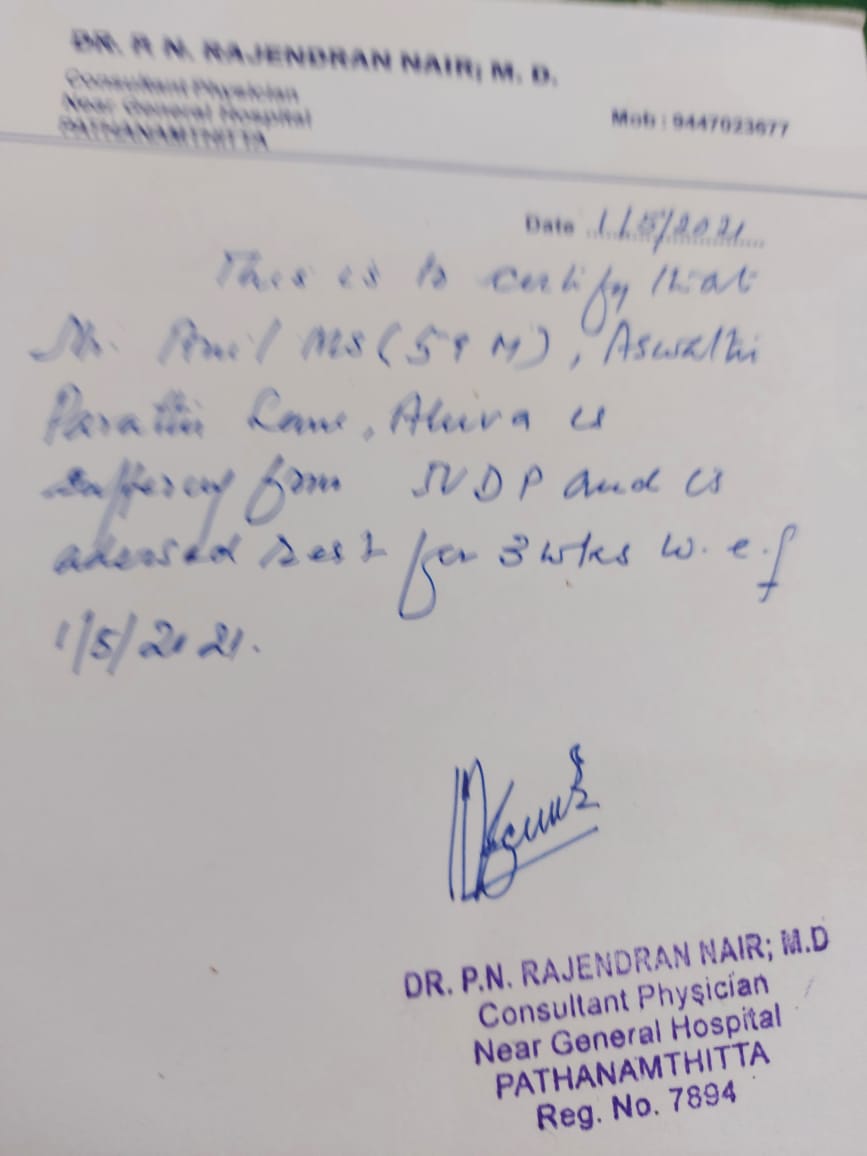 DR. P. N. RAJENDRAN NAIR; M. D.
Consultant Physician
Near General Hospital
PATHANAMTHITTA
Mob : 9447023677
Date 1/5/2021
This is to certify that
Mr. Anil MS (59 M), Aswathi
Lane, Aluva is
suffering from IVDP and is
advised rest for 3 wks w.e.f
1/5/2021.
DR. P.N. RAJENDRAN NAIR; M.D
Consultant Physician
Near General Hospital
PATHANAMTHITTA
Reg. No. 7894